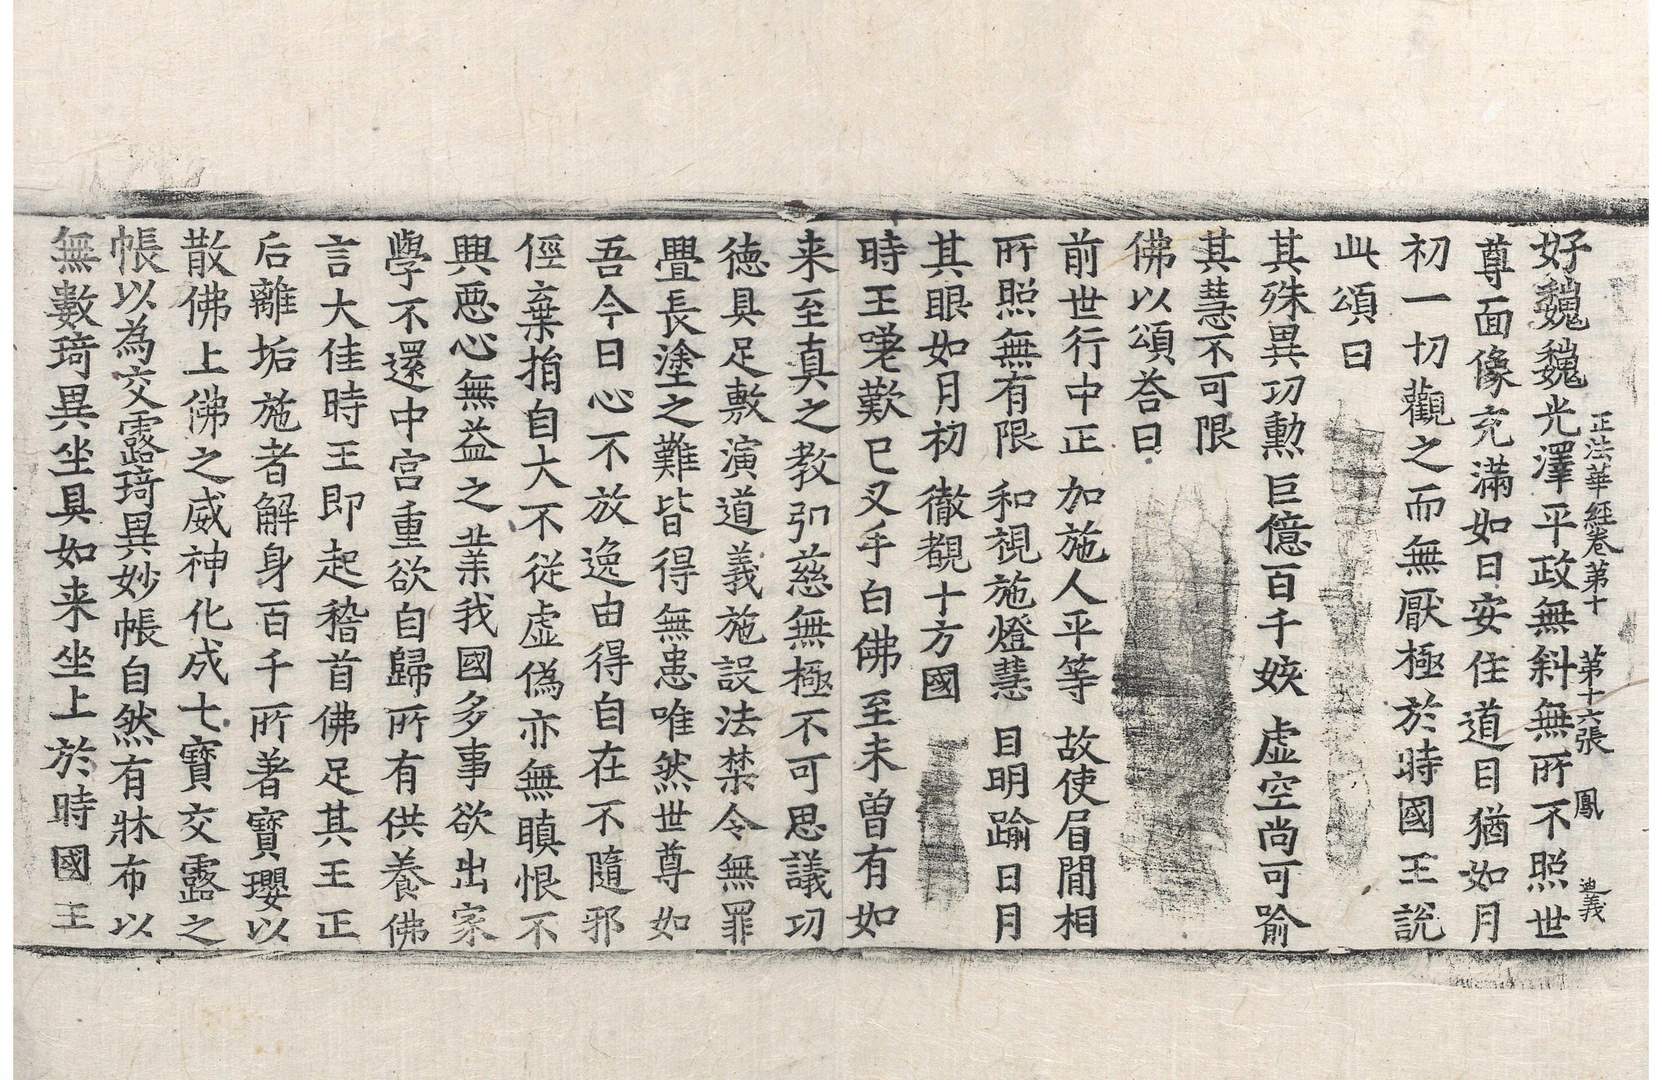 正法華經卷第十　第十六張　鳳　迪義
好巍巍光澤平政無斜無所不照世
尊面像充滿如日安住道目猶如月
初一切觀之而無厭極於時國王說
此頌曰
其殊異功勲　巨億百千姟　虛空尚可踰
其慧不可限
佛以頌荅曰
前世行中正　加施人平等　故使眉間相
所照無有限　和視施燈慧　目明踰日月
其眼如月初　徹覩十方國
時王嗟歎已叉手白佛至未曾有如
来至真之教引慈無極不可思議功
徳具足敷演道義施設法禁令無罪
舋長塗之難皆得無恚唯然世尊如
吾今日心不放逸由得自在不隨邪
徑棄捐自大不從虛偽亦無瞋恨不
興惡心無益之業我國多事欲出家
學不還中宮重欲自歸所有供養佛
言大佳時王即起稽首佛足其王正
后離垢施者解身百千所著寶瓔以
散佛上佛之威神化成七寶交露之
帳以為交露琦異妙帳自然有牀布以
無數琦異坐具如来坐上於時國王